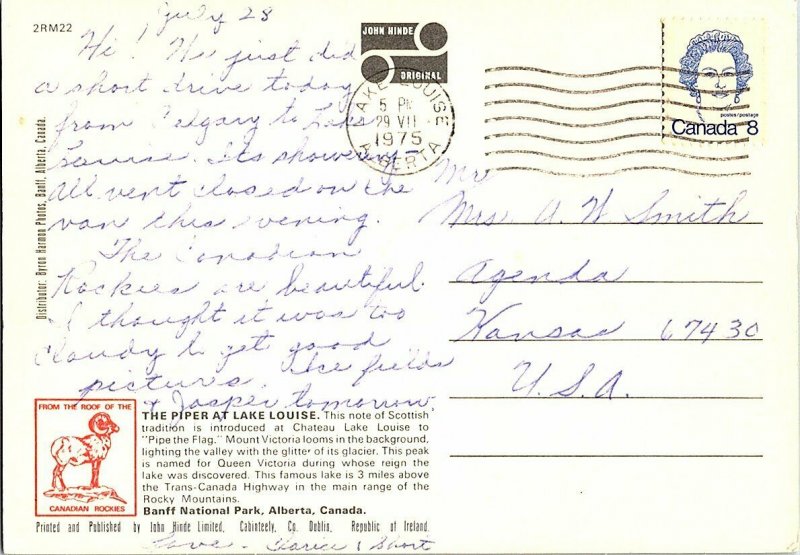 2RM22
July 28
Hi! We just did
a short drive today
from Calgary to Lake
Louise. Its showery -
All vent closed on the
van this evening.
The Canadian
Rockies are beautiful.
I thought it was too
cloudy to get good
pictures. Ice fields
& Jasper tomorrow.
Love - Clarice & Short
JOHN HINDE
ORIGINAL
LAKE LOUISE
5 PM
29 VII
1975
ALBERTA
postes/postage
Canada 8
Mr
Mrs A. W Smith
Agenda
Kansas 67430
U.S.A.
Distributor: Byron Harmon Photos, Banff, Alberta, Canada.
FROM THE ROOF OF THE
CANADIAN ROCKIES
THE PIPER AT LAKE LOUISE. This note of Scottish
tradition is introduced at Chateau Lake Louise to
"Pipe the Flag." Mount Victoria looms in the background,
lighting the valley with the glitter of its glacier. This peak
is named for Queen Victoria during whose reign the
lake was discovered. This famous lake is 3 miles above
the Trans-Canada Highway in the main range of the
Rocky Mountains.
Banff National Park, Alberta, Canada.
Printed and Published by John Hinde Limited, Cabinteely, Co. Dublin, Republic of Ireland.